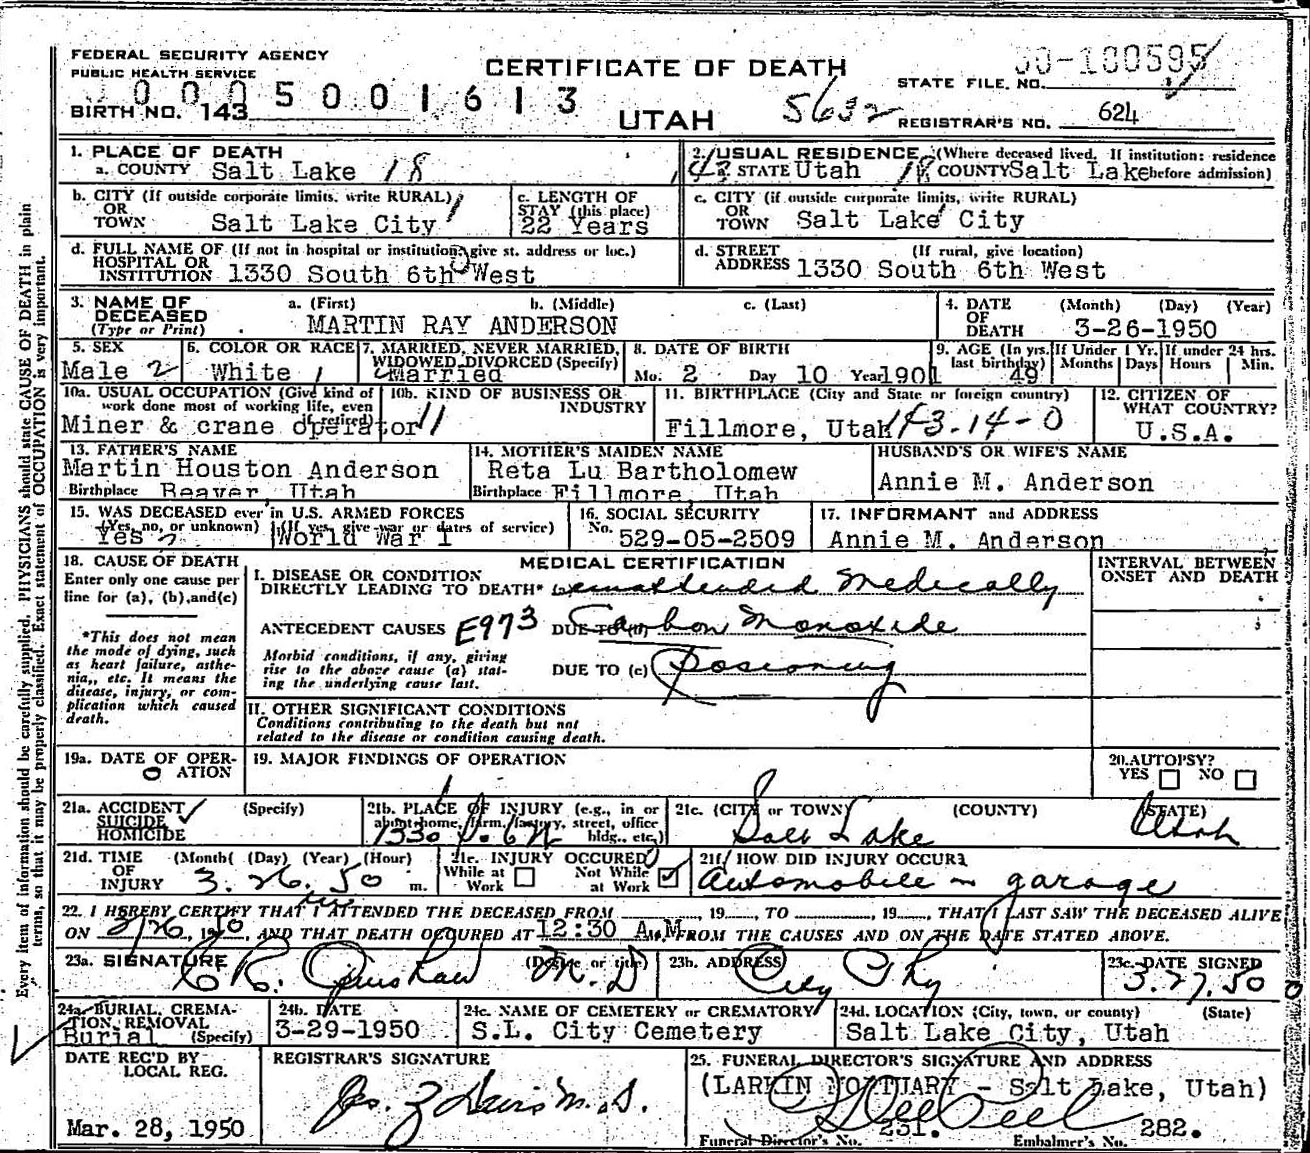 FEDERAL SECURITY AGENCY
PUBLIC HEALTH SERVICE
CERTIFICATE OF DEATH
UTAH
STATE FILE NO. 50-180595
0005001613
BIRTH NO. 143
5632
REGISTRAR'S NO. 624
1. PLACE OF DEATH
a. COUNTY Salt Lake 18
2. USUAL RESIDENCE (Where deceased lived. If institution: residence
43 STATE Utah 18 COUNTY Salt Lake before admission)
b. CITY (If outside corporate limits, write RURAL)
OR
TOWN Salt Lake City
c. LENGTH OF
STAY (this place)
22 Years
c. CITY (if outside corporate limits, write RURAL)
OR
TOWN Salt Lake City
d. FULL NAME OF (If not in hospital or institution, give st. address or loc.)
HOSPITAL OR
INSTITUTION 1330 South 6th West
d. STREET (If rural, give location)
ADDRESS 1330 South 6th West
3. NAME OF a. (First) b. (Middle) c. (Last)
DECEASED
(Type or Print) MARTIN RAY ANDERSON
4. DATE (Month) (Day) (Year)
OF
DEATH 3-26-1950
5. SEX
Male 2
6. COLOR OR RACE
White 1
7. MARRIED, NEVER MARRIED,
WIDOWED, DIVORCED (Specify)
Married
8. DATE OF BIRTH
Mo. 2 Day 10 Year 1901
9. AGE (In yrs. last birthday) 49
If Under 1 Yr. Months Days
If under 24 hrs. Hours Min.
10a. USUAL OCCUPATION (Give kind of
work done most of working life, even
if retired)
Miner & crane operator
10b. KIND OF BUSINESS OR
INDUSTRY
11
11. BIRTHPLACE (City and State or foreign country)
Fillmore, Utah 43-14-0
12. CITIZEN OF
WHAT COUNTRY?
U.S.A.
13. FATHER'S NAME
Martin Houston Anderson
Birthplace Beaver, Utah
14. MOTHER'S MAIDEN NAME
Reta Lu Bartholomew
Birthplace Fillmore, Utah
HUSBAND'S OR WIFE'S NAME
Annie M. Anderson
15. WAS DECEASED ever in U.S. ARMED FORCES
(Yes, no, or unknown) (If yes, give war or dates of service)
Yes World War I
16. SOCIAL SECURITY
No. 529-05-2509
17. INFORMANT and ADDRESS
Annie M. Anderson
18. CAUSE OF DEATH
Enter only one cause per
line for (a), (b), and (c)
*This does not mean
the mode of dying, such
as heart failure, asthe-
nia,, etc. It means the
disease, injury, or com-
plication which caused
death.
MEDICAL CERTIFICATION
INTERVAL BETWEEN
ONSET AND DEATH
I. DISEASE OR CONDITION
DIRECTLY LEADING TO DEATH* (a) unattended Medically
ANTECEDENT CAUSES E973 DUE TO (b) Carbon Monoxide
Morbid conditions, if any, giving
rise to the above cause (a) stat-
ing the underlying cause last.
DUE TO (c) Posioning
II. OTHER SIGNIFICANT CONDITIONS
Conditions contributing to the death but not
related to the disease or condition causing death.
19a. DATE OF OPER-
ATION
0
19. MAJOR FINDINGS OF OPERATION
20. AUTOPSY?
YES NO
21a. ACCIDENT ✓ (Specify)
SUICIDE
HOMICIDE
21b. PLACE OF INJURY (e.g., in or
about home, farm, factory, street, office
bldg., etc.)
1330 S. 6 W
21c. (CITY or TOWN) (COUNTY) (STATE)
Salt Lake Utah
21d. TIME (Month) (Day) (Year) (Hour)
OF
INJURY 3. 26. 50 m.
21e. INJURY OCCURED
While at Work Not While at Work ✓
21f. HOW DID INJURY OCCUR?
Automobile in garage
22. I HEREBY CERTIFY THAT I ATTENDED THE DECEASED FROM , 19 , TO , 19 , THAT I LAST SAW THE DECEASED ALIVE
ON 3/26, 1950, AND THAT DEATH OCCURED AT 12:30 A.M. FROM THE CAUSES AND ON THE DATE STATED ABOVE.
23a. SIGNATURE (Degree or title) M.D
23b. ADDRESS
City Phy
23c. DATE SIGNED
3.27.50
24a. BURIAL, CREMA-
TION, REMOVAL
Burial (Specify)
24b. DATE
3-29-1950
24c. NAME OF CEMETERY or CREMATORY
S.L. City Cemetery
24d. LOCATION (City, town, or county) (State)
Salt Lake City, Utah
DATE REC'D BY
LOCAL REG.
Mar. 28, 1950
REGISTRAR'S SIGNATURE
25. FUNERAL DIRECTOR'S SIGNATURE AND ADDRESS
(LARKIN MORTUARY - Salt Lake, Utah)
Funeral Director's No. 231. Embalmer's No. 282.
Every item of information should be carefully supplied. PHYSICIANS should state CAUSE OF DEATH in plain
terms, so that it may be properly classified. Exact statement of OCCUPATION is very important.